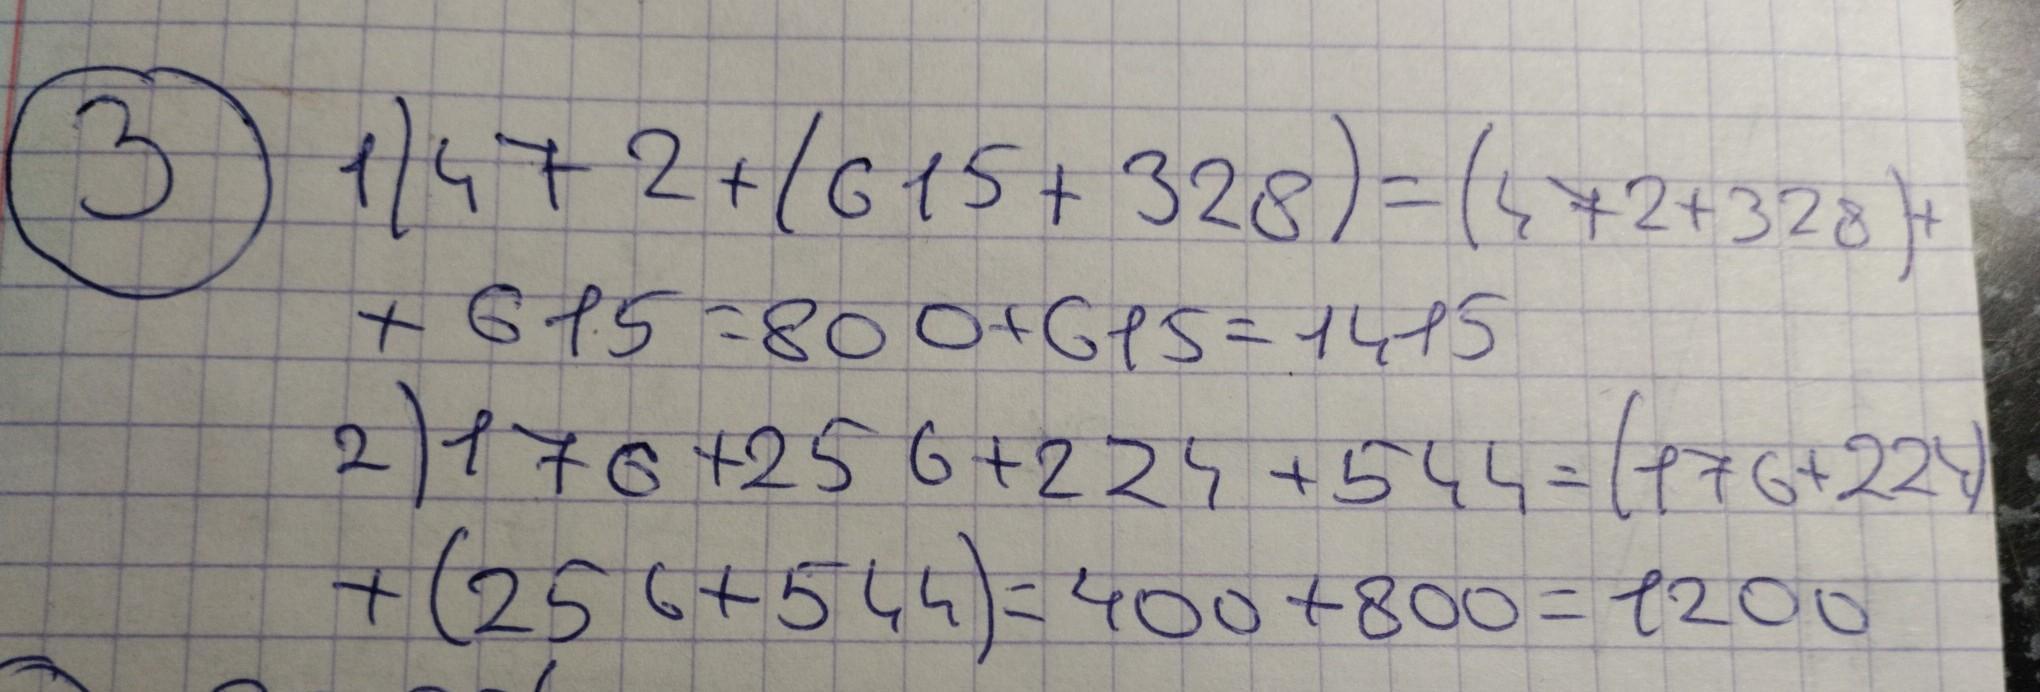 3 1) 472+(615+328)=(472+328)+
+615=800+615=1415
2) 176+256+224+544=(176+224)
+(256+544)=400+800=1200